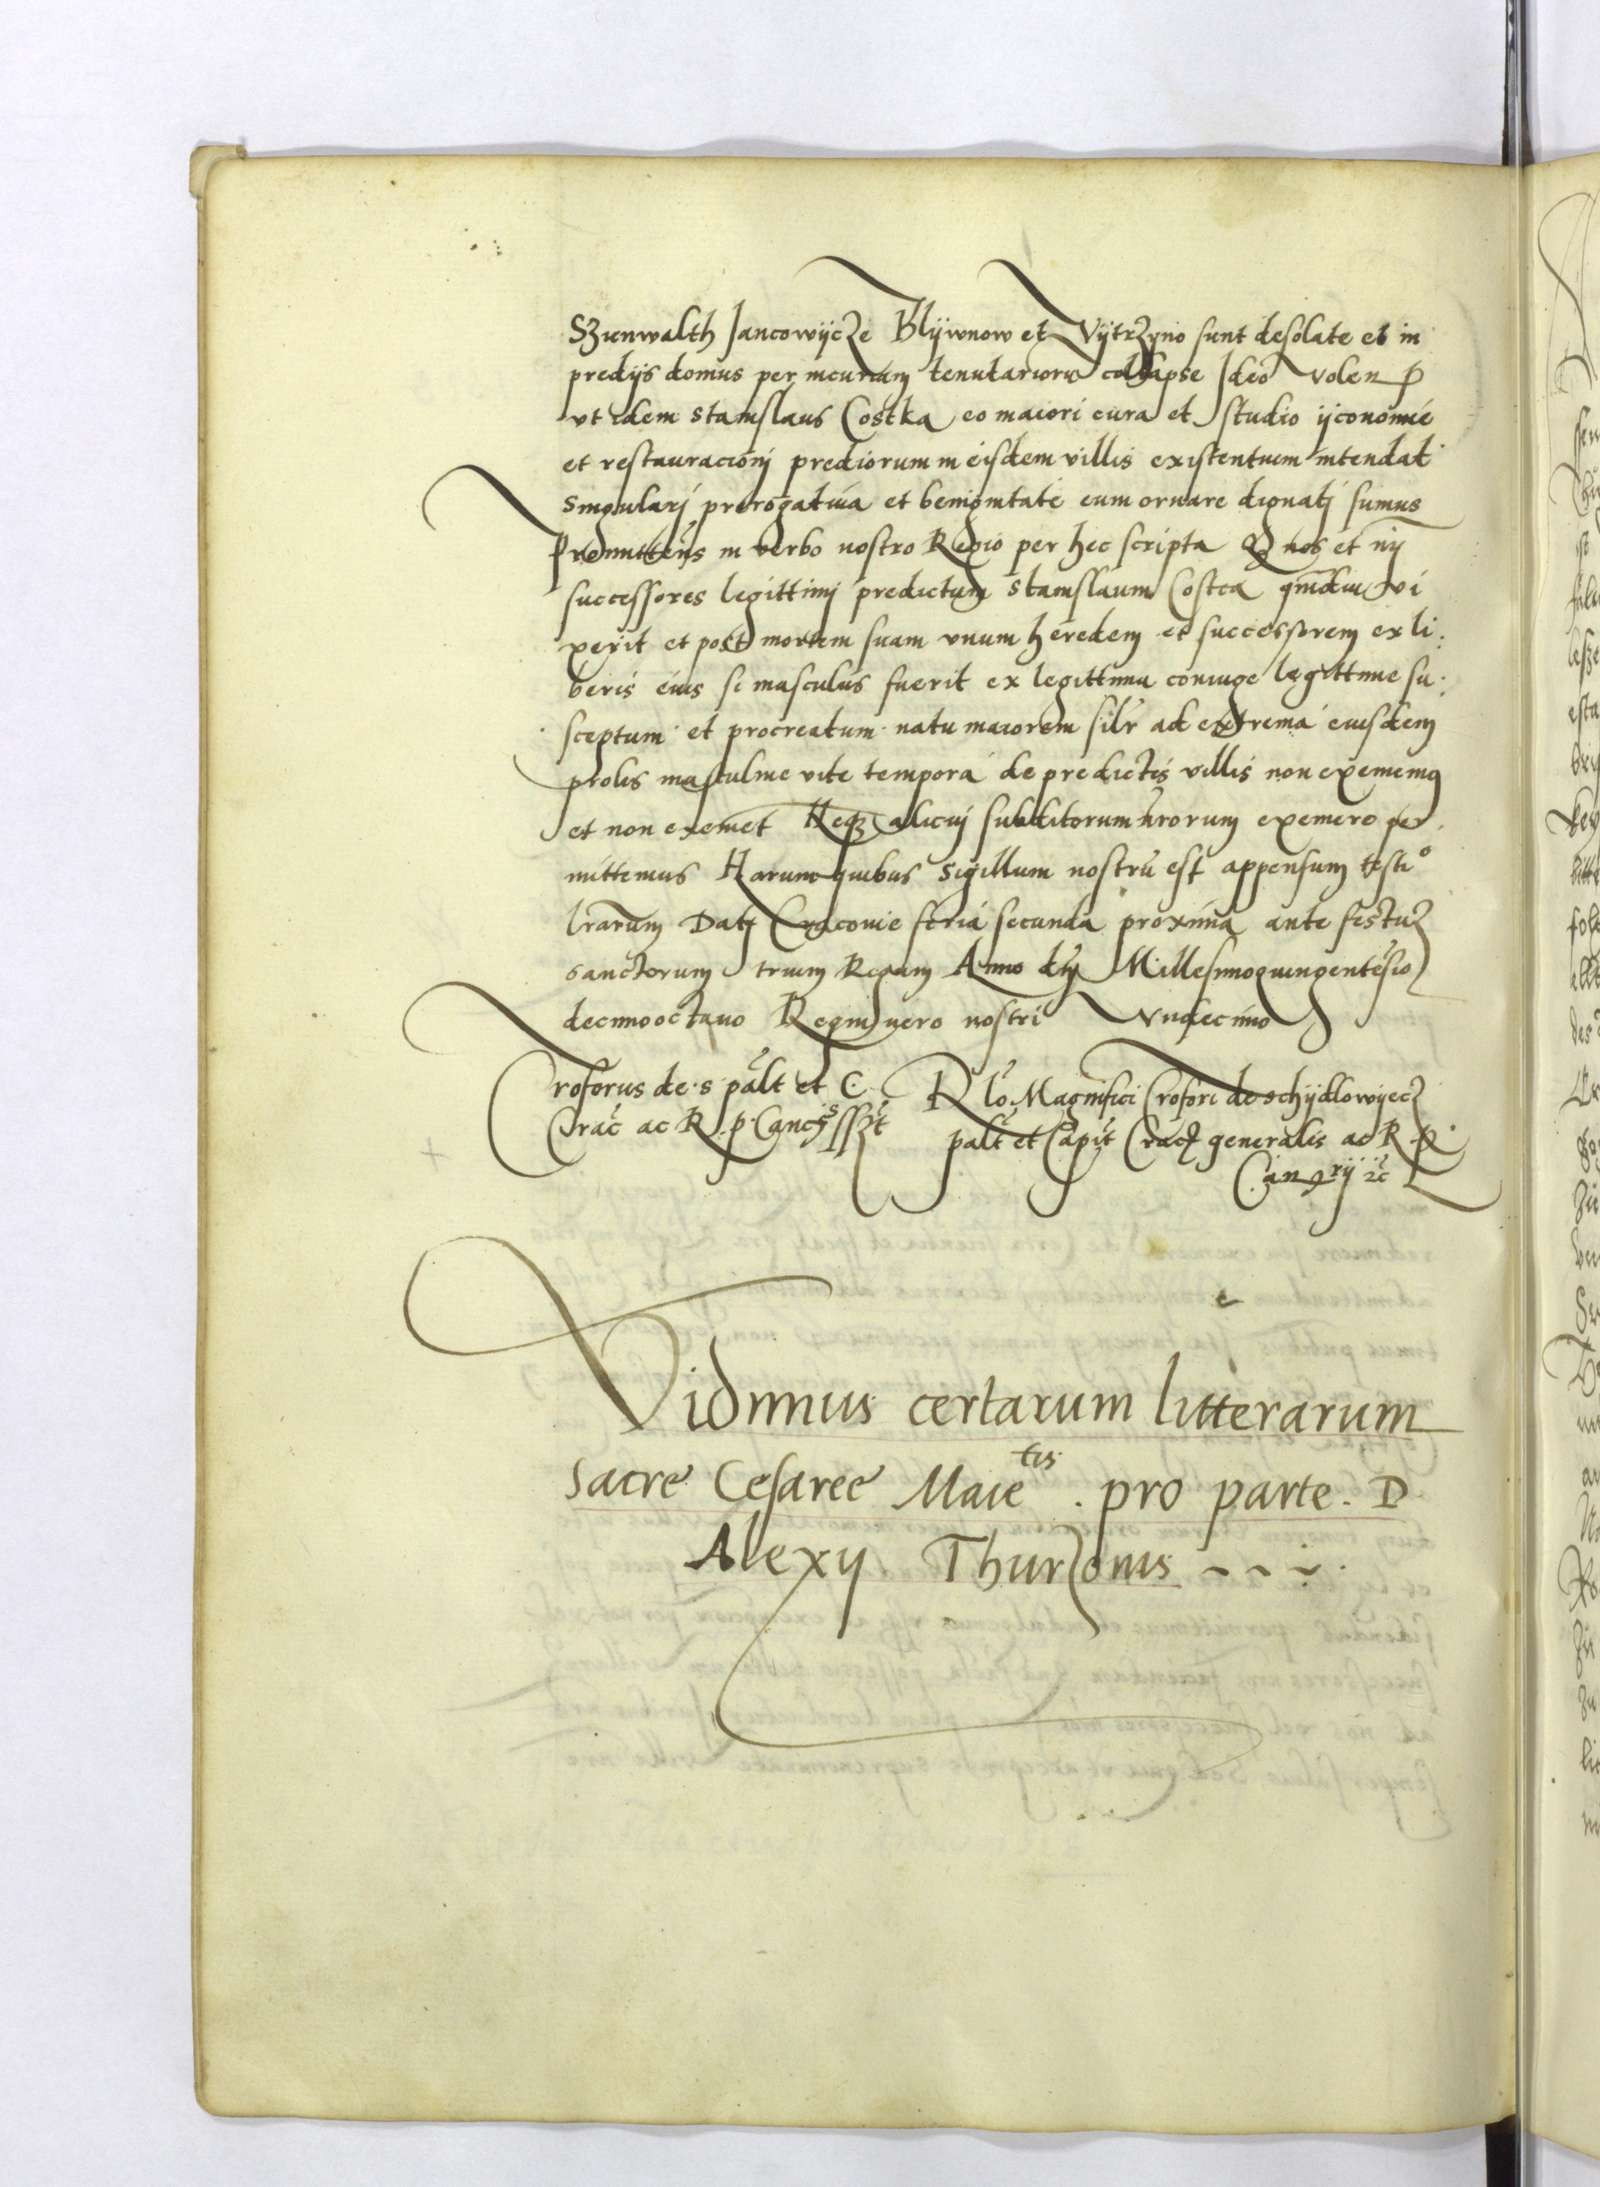 Szunwalth Jancowijcze Blijwnow et Vijtrzyno sunt desolate et in
predijs domus per incuriam tenutariorū collapse Ideo volen
vt idem Stanislaus Costka eo maiori cura et studio ijconomie
et restauracionj prediorum in eisdem villis existentium intendat
singularj prerogatiua et benignitate eum ornare dignatj sumus
Promittens in verbo nostro Regio per hec scripta Qz nos et nrj
successores legittimj predictum Stanislaum Costca qmdiu vi
xerit et post mortem suam vnum heredem et successorem ex li
beris eius si masculus fuerit ex legittima coniuge legittime su
sceptum et procreatum natu maiorem silr ad extrema eiusdem
prolis masculine vite tempora de predictis villis non exememq
et non exemet Neqz alicuj subditorum nrorum exemere per
mittemus Harum quibus sigillum nostrū est appensum testio
lrarum Datj Cracouie feria secunda proxima ante festuz
sanctorum trium Regum Anno dnj Millesimoquingentesio
decimooctauo Regni vero nostri vndecimo
Croforus de s palt et C Rlo Magnifici Crofori de schijdlowijecz
Crac ac R p Canc sszt palt et Capit Crac generalis ac R P
Canrij zc
Vidimus certarum litterarum
Sacre Cesaree Maietis . pro parte . D
Alexij Thurzonis